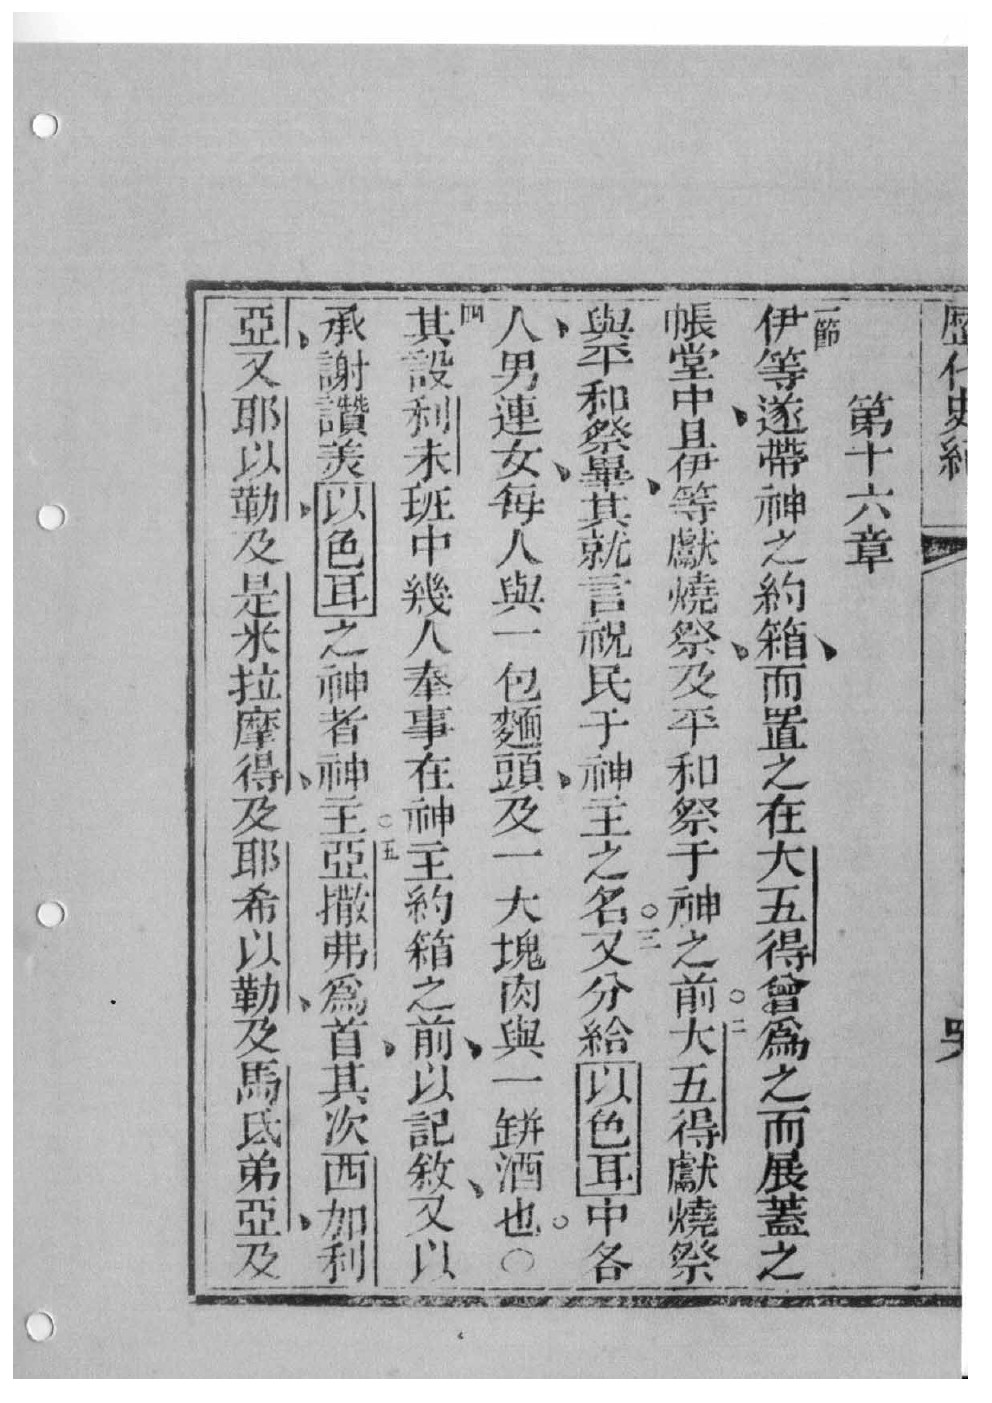 歷代史紀
第十六章
一節伊等遂帶神之約箱、而置之在大五得曾爲之而展蓋之
帳堂中、且伊等獻燒祭、及平和祭于神之前。二大五得獻燒祭
與平和祭畢、其就言祝民于神主之名。三又分給以色耳中各
人、男連女、每人與一包麵頭、及一大塊肉與一缾酒也。○
四其設利未班中幾人奉事在神主約箱之前、以記敘、又以
承謝讚美以色耳之神者神主。五亞撒弗爲首、其次西加利
亞、又耶以勒、及是米拉摩得、及耶希以勒、及馬氐弟亞、及